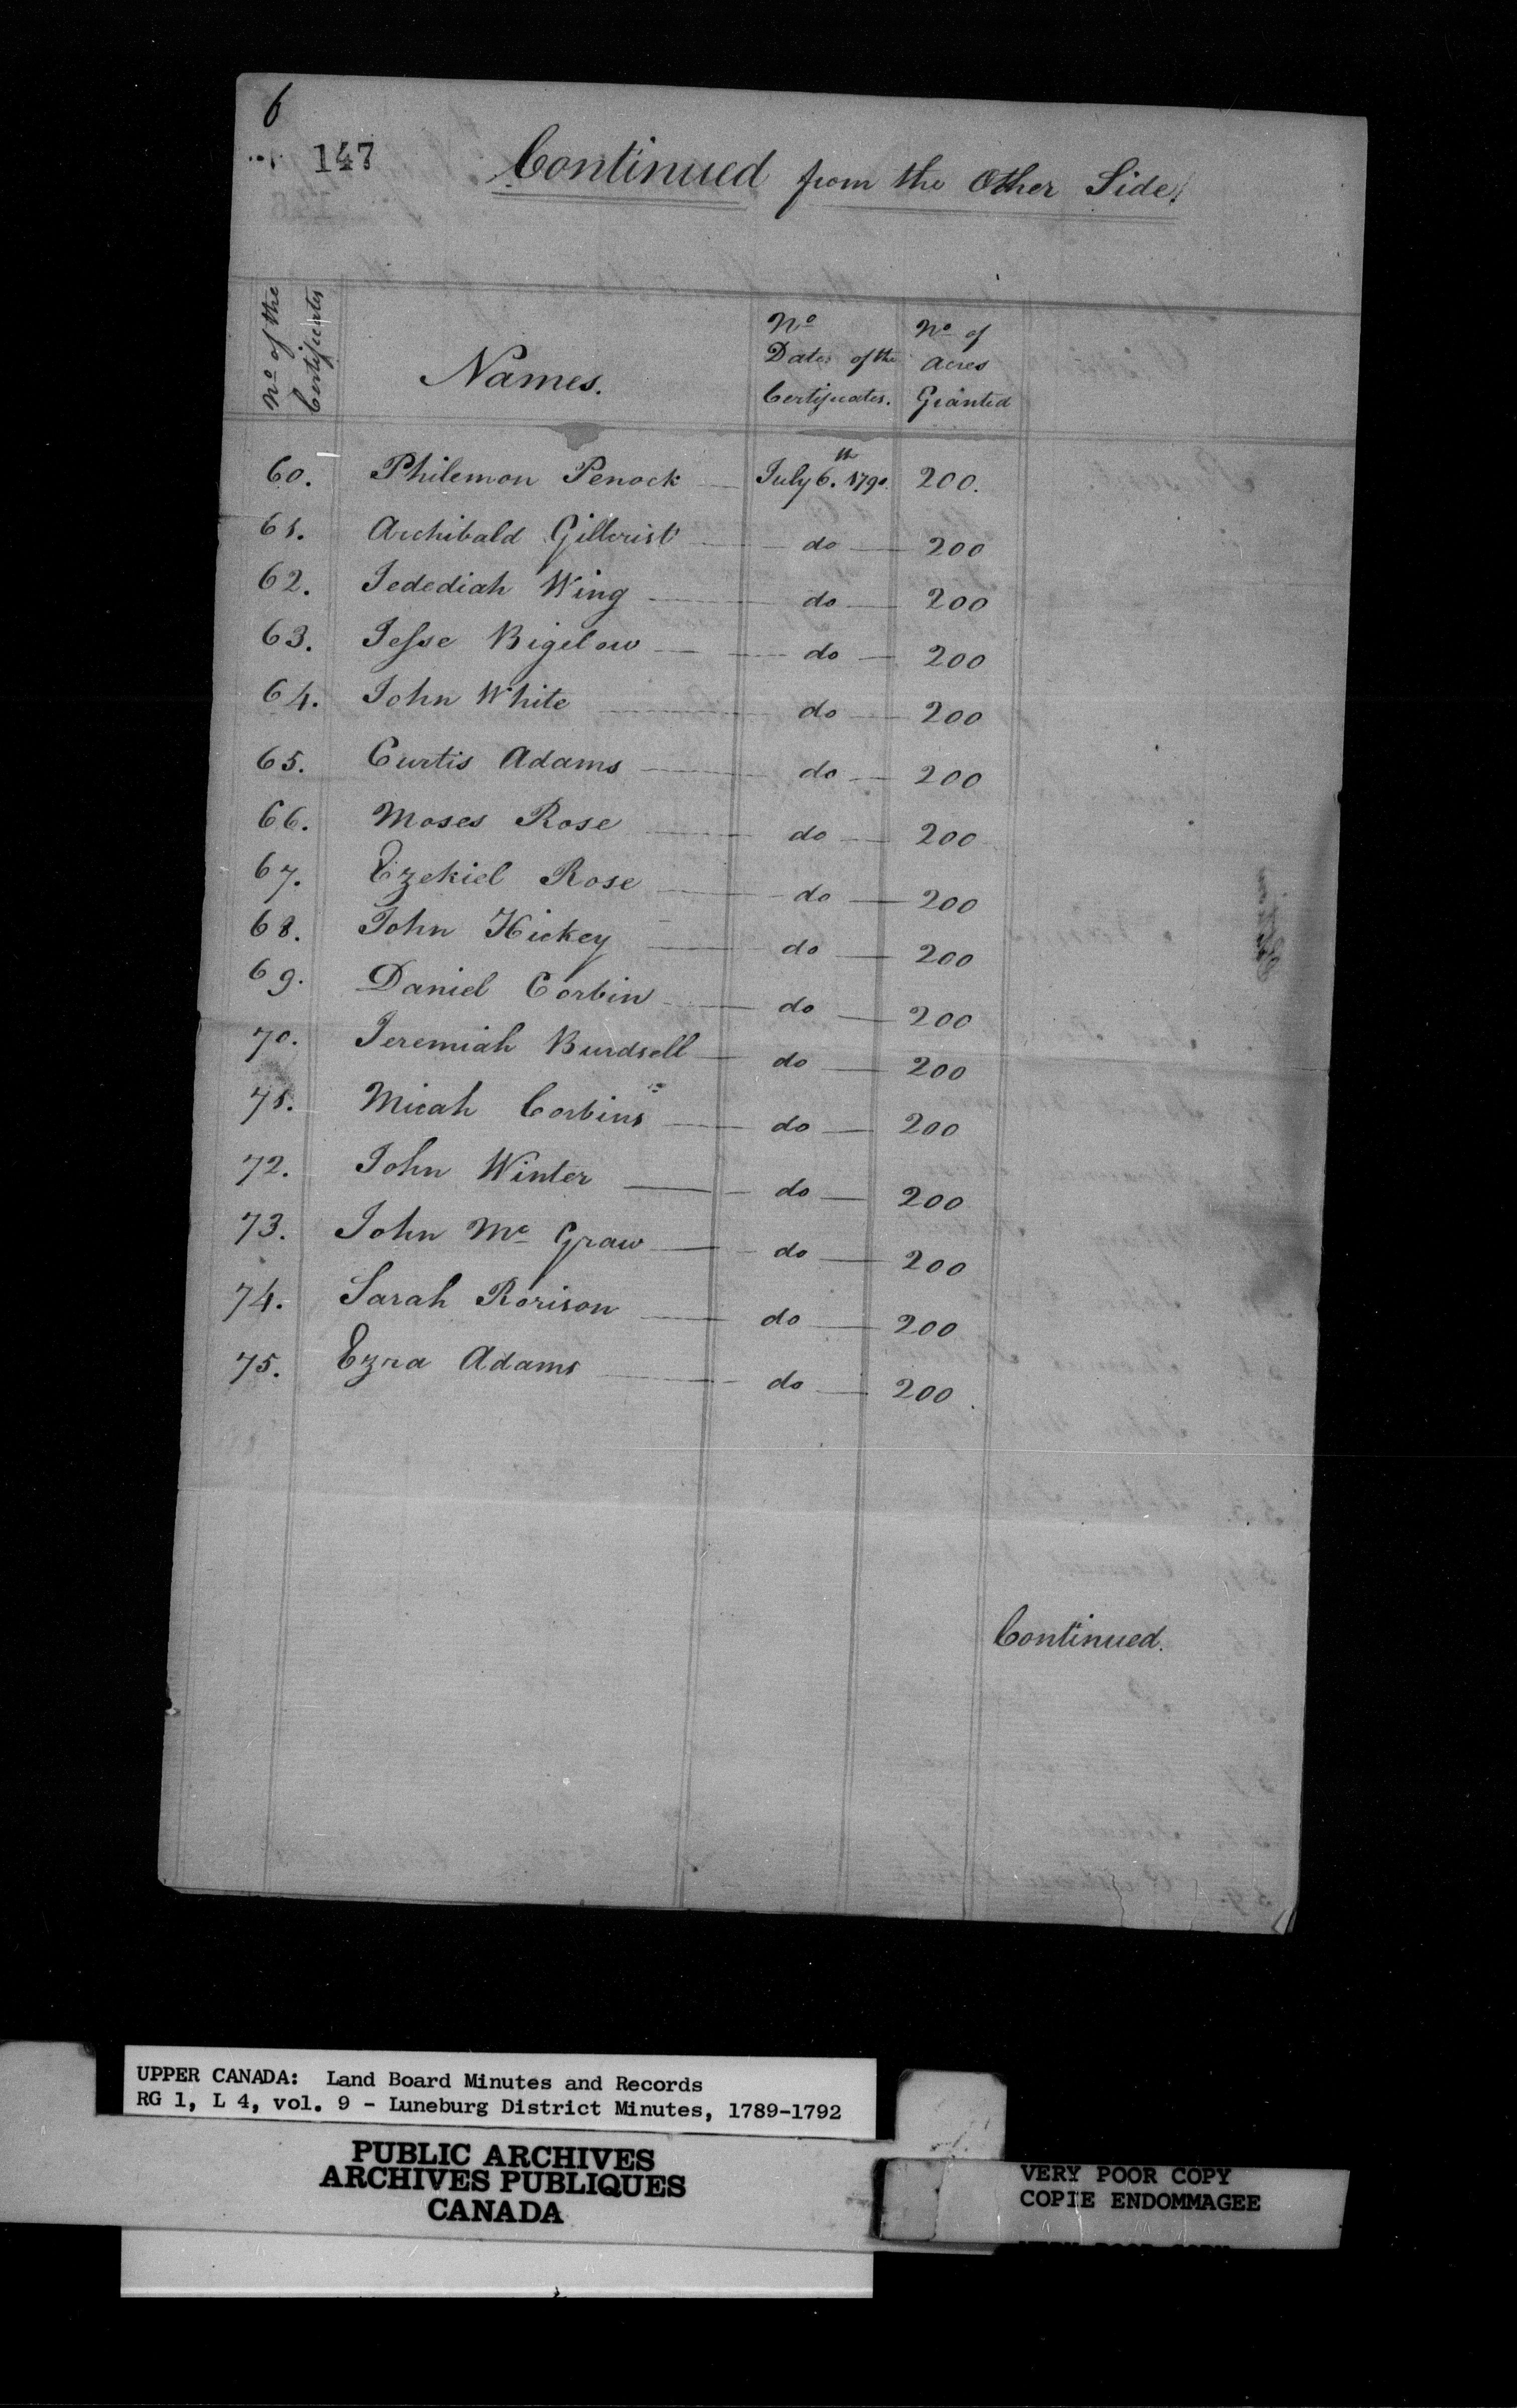 6
147
Continued from the Other Side.
No of the Certificates
Names.
No Dates of the Certificates.
No of Acres Granted
60. Philemon Penock July 6th. 1790. 200.
61. Archibald Gillcrist do 200
62. Jedediah Wing do 200
63. Jesse Bigelow do 200
64. John White do 200
65. Curtis Adams do 200
66. Moses Rose do 200
67. Ezekiel Rose do 200
68. John Hickey do 200
69. Daniel Corbin do 200
70. Jeremiah Burdsell do 200
71. Micah Corbins do 200
72. John Winter do 200
73. John Mc Graw do 200
74. Sarah Rorison do 200
75. Ezra Adams do 200.
Continued.
UPPER CANADA: Land Board Minutes and Records
RG 1, L 4, vol. 9 - Luneburg District Minutes, 1789-1792
PUBLIC ARCHIVES
ARCHIVES PUBLIQUES
CANADA
VERY POOR COPY
COPIE ENDOMMAGEE